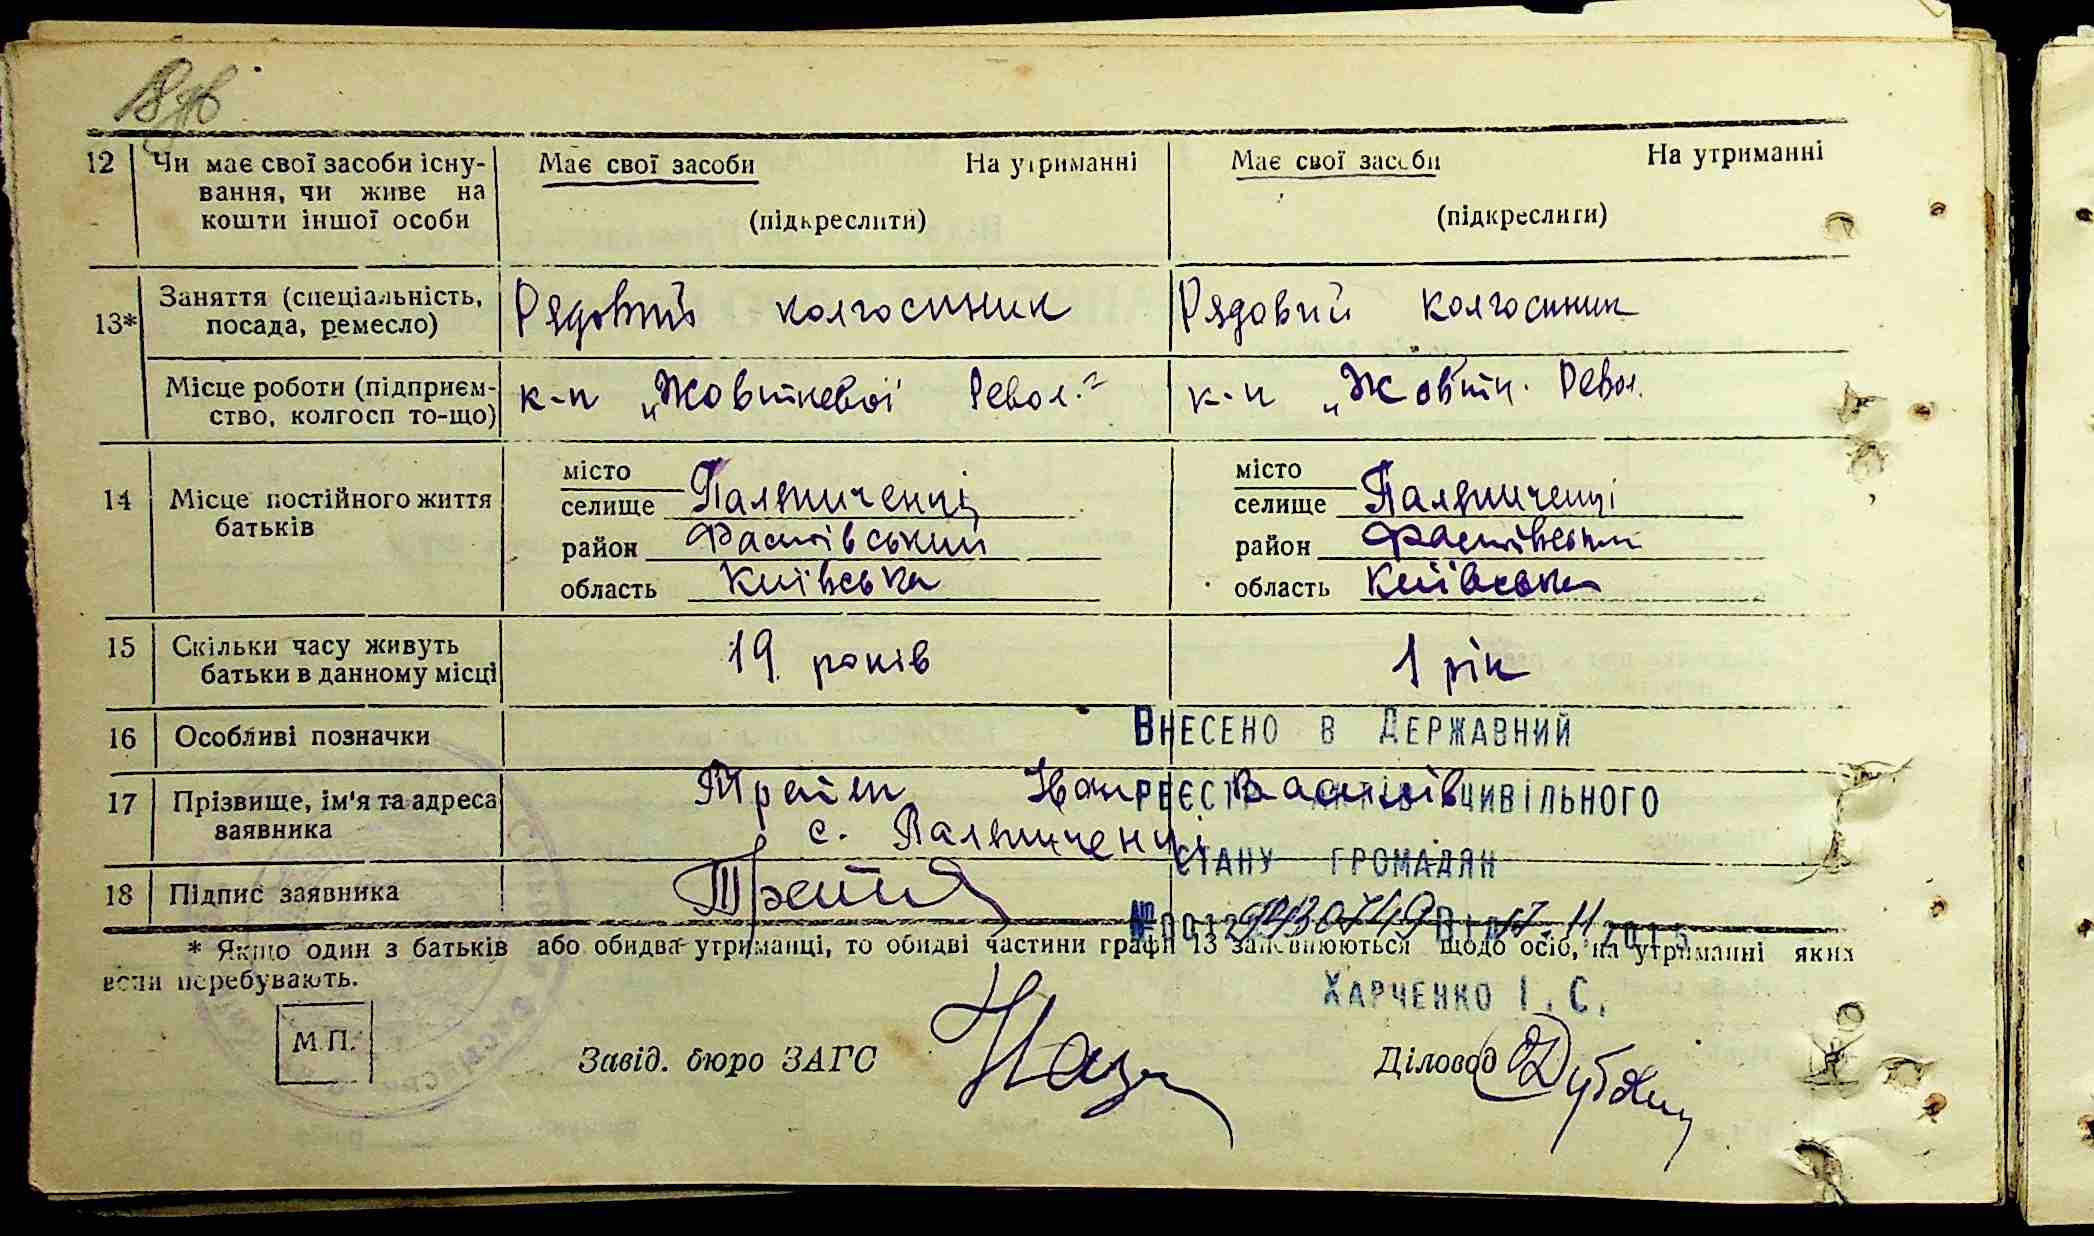 12 Чи має свої засоби існу- Має свої засоби На утриманні Має свої засоби На утриманні
вання, чи живе на
кошти іншої особи (підкреслити) (підкреслити)
13* Заняття (спеціальність, Рядовий колгоспник Рядовий колгоспник
посада, ремесло)
Місце роботи (підприєм- к-п „Жовтневої Револ." к-п „Жовтн. Револ.
ство, колгосп то-що)
місто місто
14 Місце постійного життя селище Паляниченці селище Паляниченці
батьків район Фастівський район Фастівський
область Київська область Київська
15 Скільки часу живуть 19 років 1 рік
батьки в данному місці
16 Особливі позначки ВНЕСЕНО В ДЕРЖАВНИЙ
17 Прізвище, ім'я та адреса РЕЄСТР ЦИВІЛЬНОГО
заявника с. Паляниченці
СТАНУ ГРОМАДЯН
18 Підпис заявника
* Якщо один з батьків або обидва утриманці, то обидві частини графи 13 заповнюються щодо осіб, на утриманні яких
вони перебувають.
ХАРЧЕНКО І. С.
М.П. Завід. бюро ЗАГС Діловод